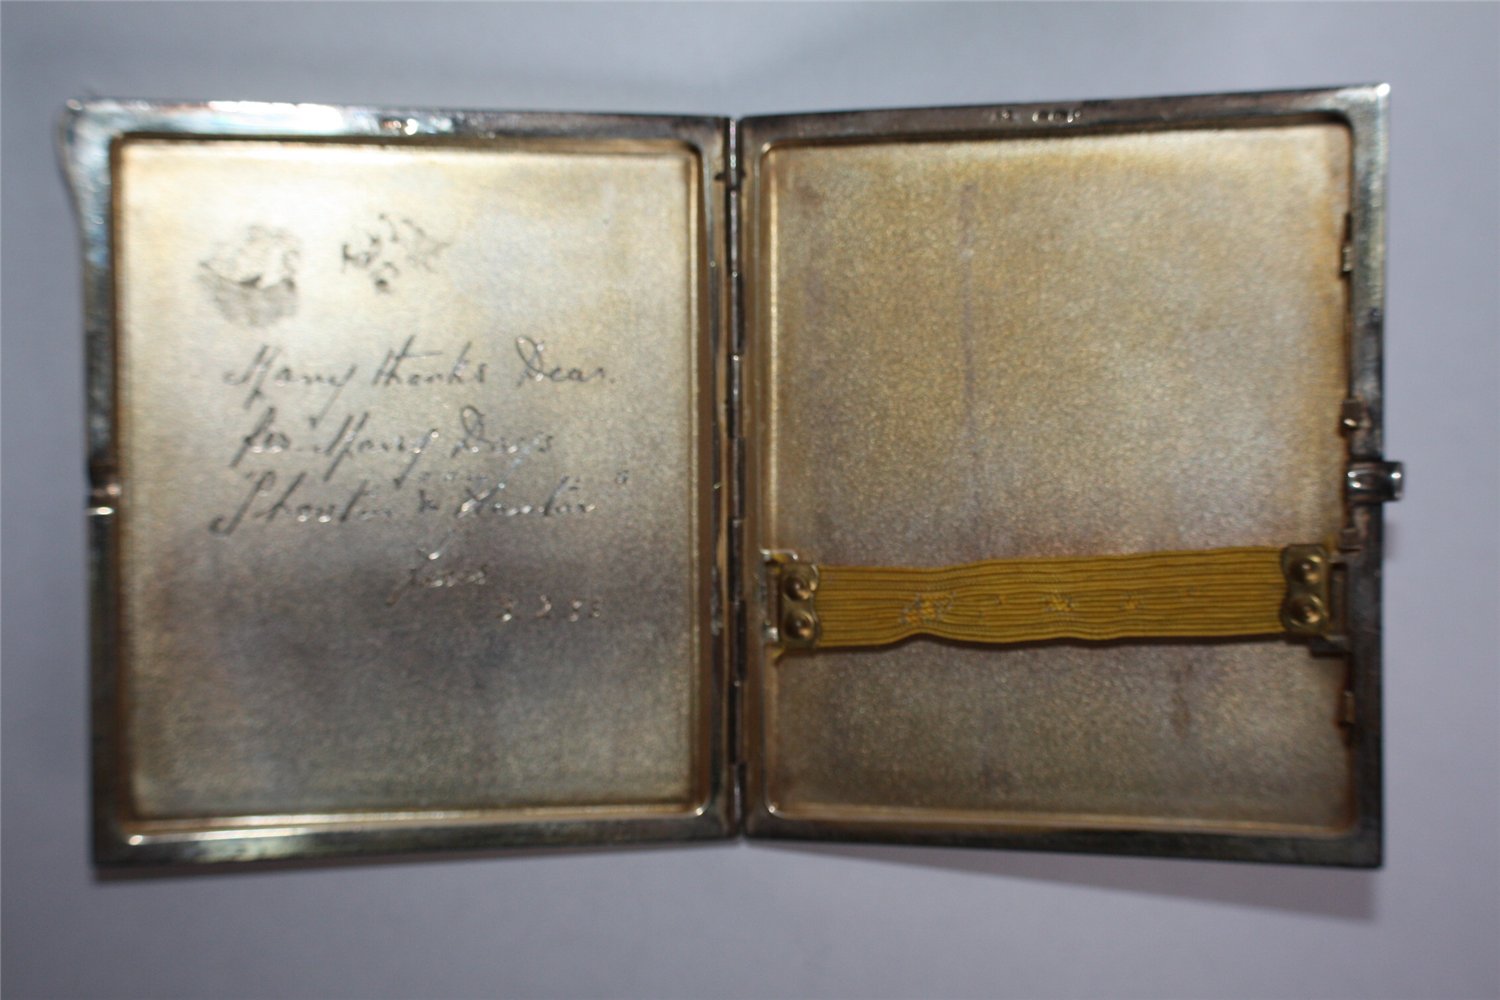 Many thanks Dear.
for "Many Days
Shootin & Huntin"